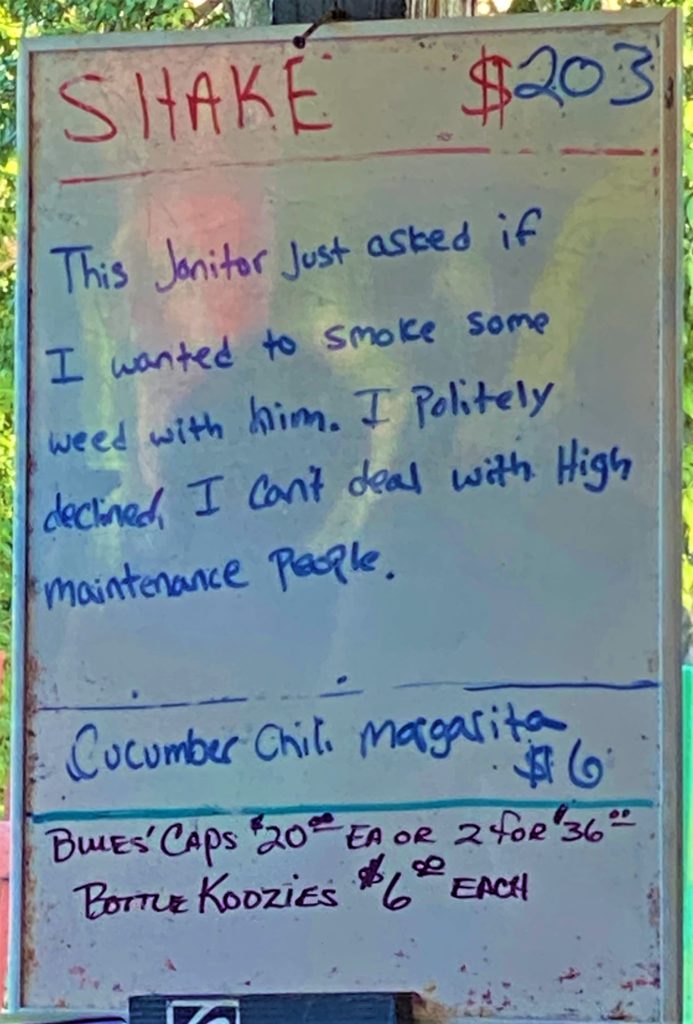 SHAKE $203
This Janitor Just asked if
I wanted to smoke some
weed with him. I Politely
declined, I Can't deal with High
maintenance People.
Cucumber Chili Margarita
$6
BLUES' CAPS $20.00 EA OR 2 FOR $36.00
BOTTLE KOOZIES $6.00 EACH